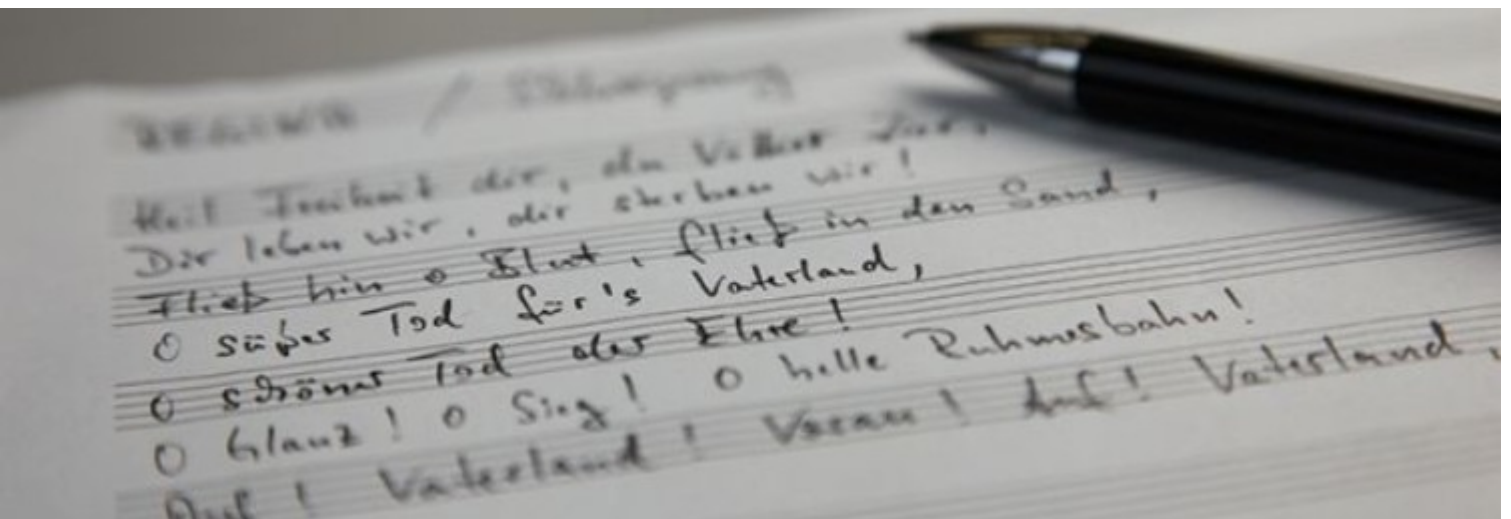 REGINA /
Heil Freiheit dir, du Völker Zier,
Dir leben wir, dir sterben wir!
Fließ hin o Blut, fließ in den Sand,
O süßer Tod für's Vaterland,
O schöner Tod der Ehre!
O Glanz! O Sieg! O helle Ruhmesbahn!
Auf! Vaterland! Voran! Auf! Vaterland,